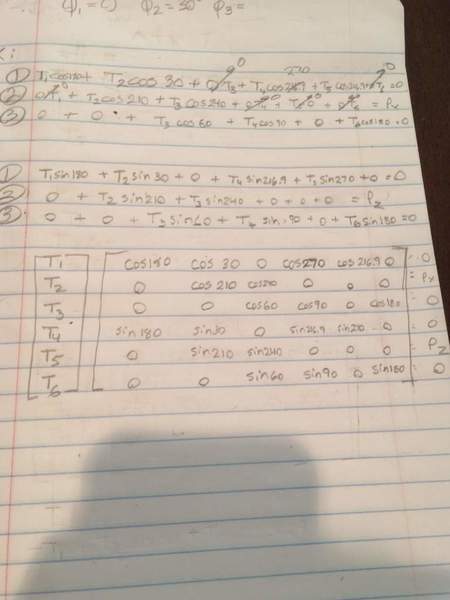 φ₁ = φ₂ = 30° φ₃ =
① T₁cos180 + T₂cos 30 + 0 T₃ + T₄cos + T₅cos + T₆ = 0
② 0 T₁ + T₂cos210 + T₃cos240 + 0 + 0 + 0 = Pₓ
③ 0 + 0 + T₃cos60 + T₄cos90 + 0 + T₆cos180=0
① T₁sin180 + T₂sin30 + 0 + T₄sin216.9 + T₅sin270 +0=0
② 0 + T₂ sin210 + T₃sin240 + 0 + 0 + 0 = P_z
③ 0 + 0 + T₃sin60 + T₄ sin 90 + 0 + T₆sin180=0
T₁ cos180 cos 30 0 cos270 cos216.9 0 = 0
T₂ 0 cos210 cos240 0 0 0 = Pₓ
T₃ 0 0 cos60 cos90 0 cos180 = 0
T₄ sin180 sin30 0 sin216.9 sin270 0 = 0
T₅ 0 sin210 sin240 0 0 0 = P_z
T₆ 0 0 sin60 sin90 0 sin180 = 0